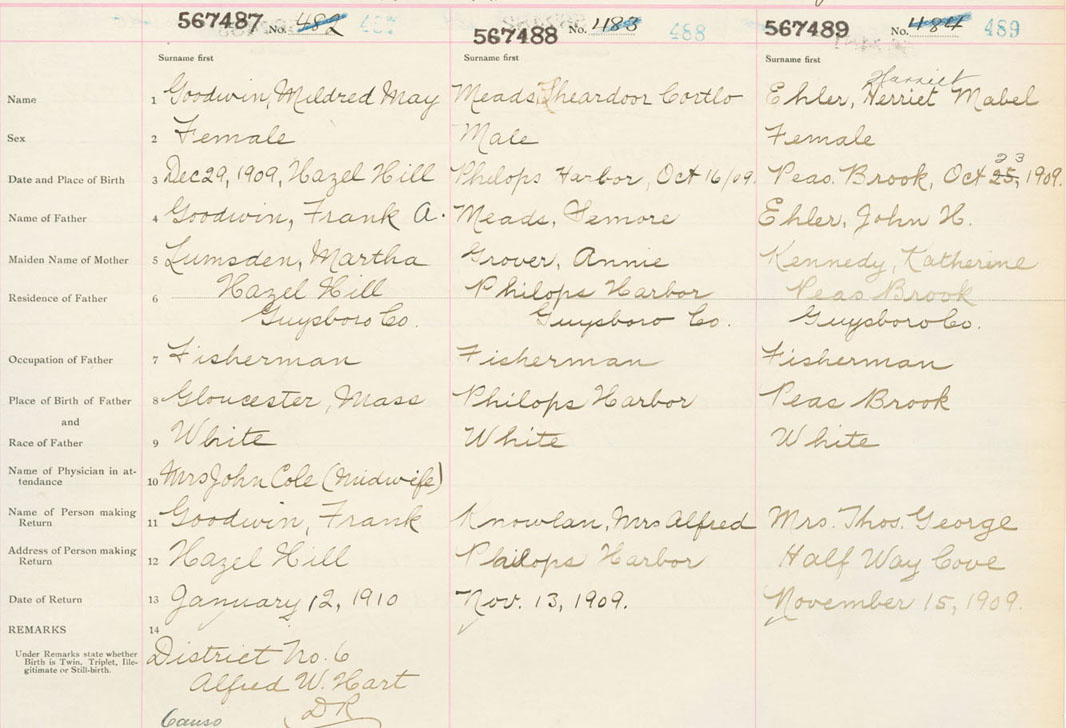 567487 No. 482 487 567488 No. 483 488 567489 No. 484 489
Surname first Surname first Surname first
Harriet
Name 1 Goodwin, Mildred May Meads, Sheardoor Costlo Ehler, Herriet Mabel
Sex 2 Female Male Female
23
Date and Place of Birth 3 Dec 29, 1909, Hazel Hill Philops Harbor, Oct 16/09. Peas. Brook, Oct 25, 1909.
Name of Father 4 Goodwin, Frank A. Meads, Femore Ehler, John H.
Maiden Name of Mother 5 Lumsden, Martha Grover, Annie Kennedy, Katherine
Residence of Father 6 Hazel Hill Philops Harbor Peas Brook
Guysboro Co. Guysboro Co. Guysboro Co.
Occupation of Father 7 Fisherman Fisherman Fisherman
Place of Birth of Father 8 Gloucester, Mass Philops Harbor Peas Brook
and
Race of Father 9 White White White
Name of Physician in at-
tendance 10 Mrs John Cole (Midwife)
Name of Person making
Return 11 Goodwin, Frank Knowlan, Mrs Alfred Mrs. Thos. George
Address of Person making
Return 12 Hazel Hill Philops Harbor Half Way Cove
Date of Return 13 January 12, 1910 Nov. 13, 1909. November 15, 1909.
REMARKS 14
Under Remarks state whether
Birth is Twin, Triplet, Ille-
gitimate or Still-birth.
District No. 6
Alfred W. Hart
Canso DR